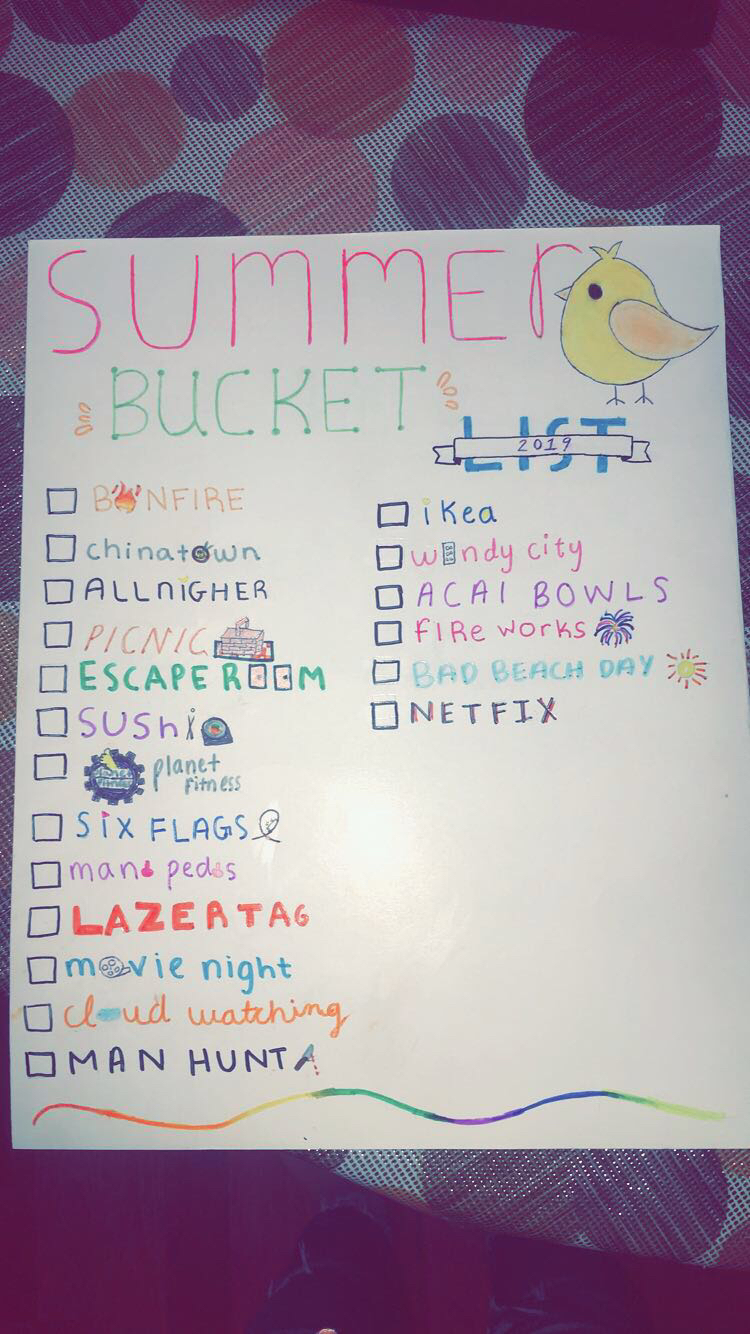 SUMMER
BUCKET
LIST
2019
BONFIRE
chinatown
ALLniGHER
PICNIC
ESCAPE ROOM
SUShi
planet
fitness
planet
fitness
SiX FLAGS
mani pedis
LAZER TAG
movie night
cloud watching
MAN HUNT
iKea
windy city
ACAI BOWLS
fiRe works
BAD BEACH DAY
NETFIX